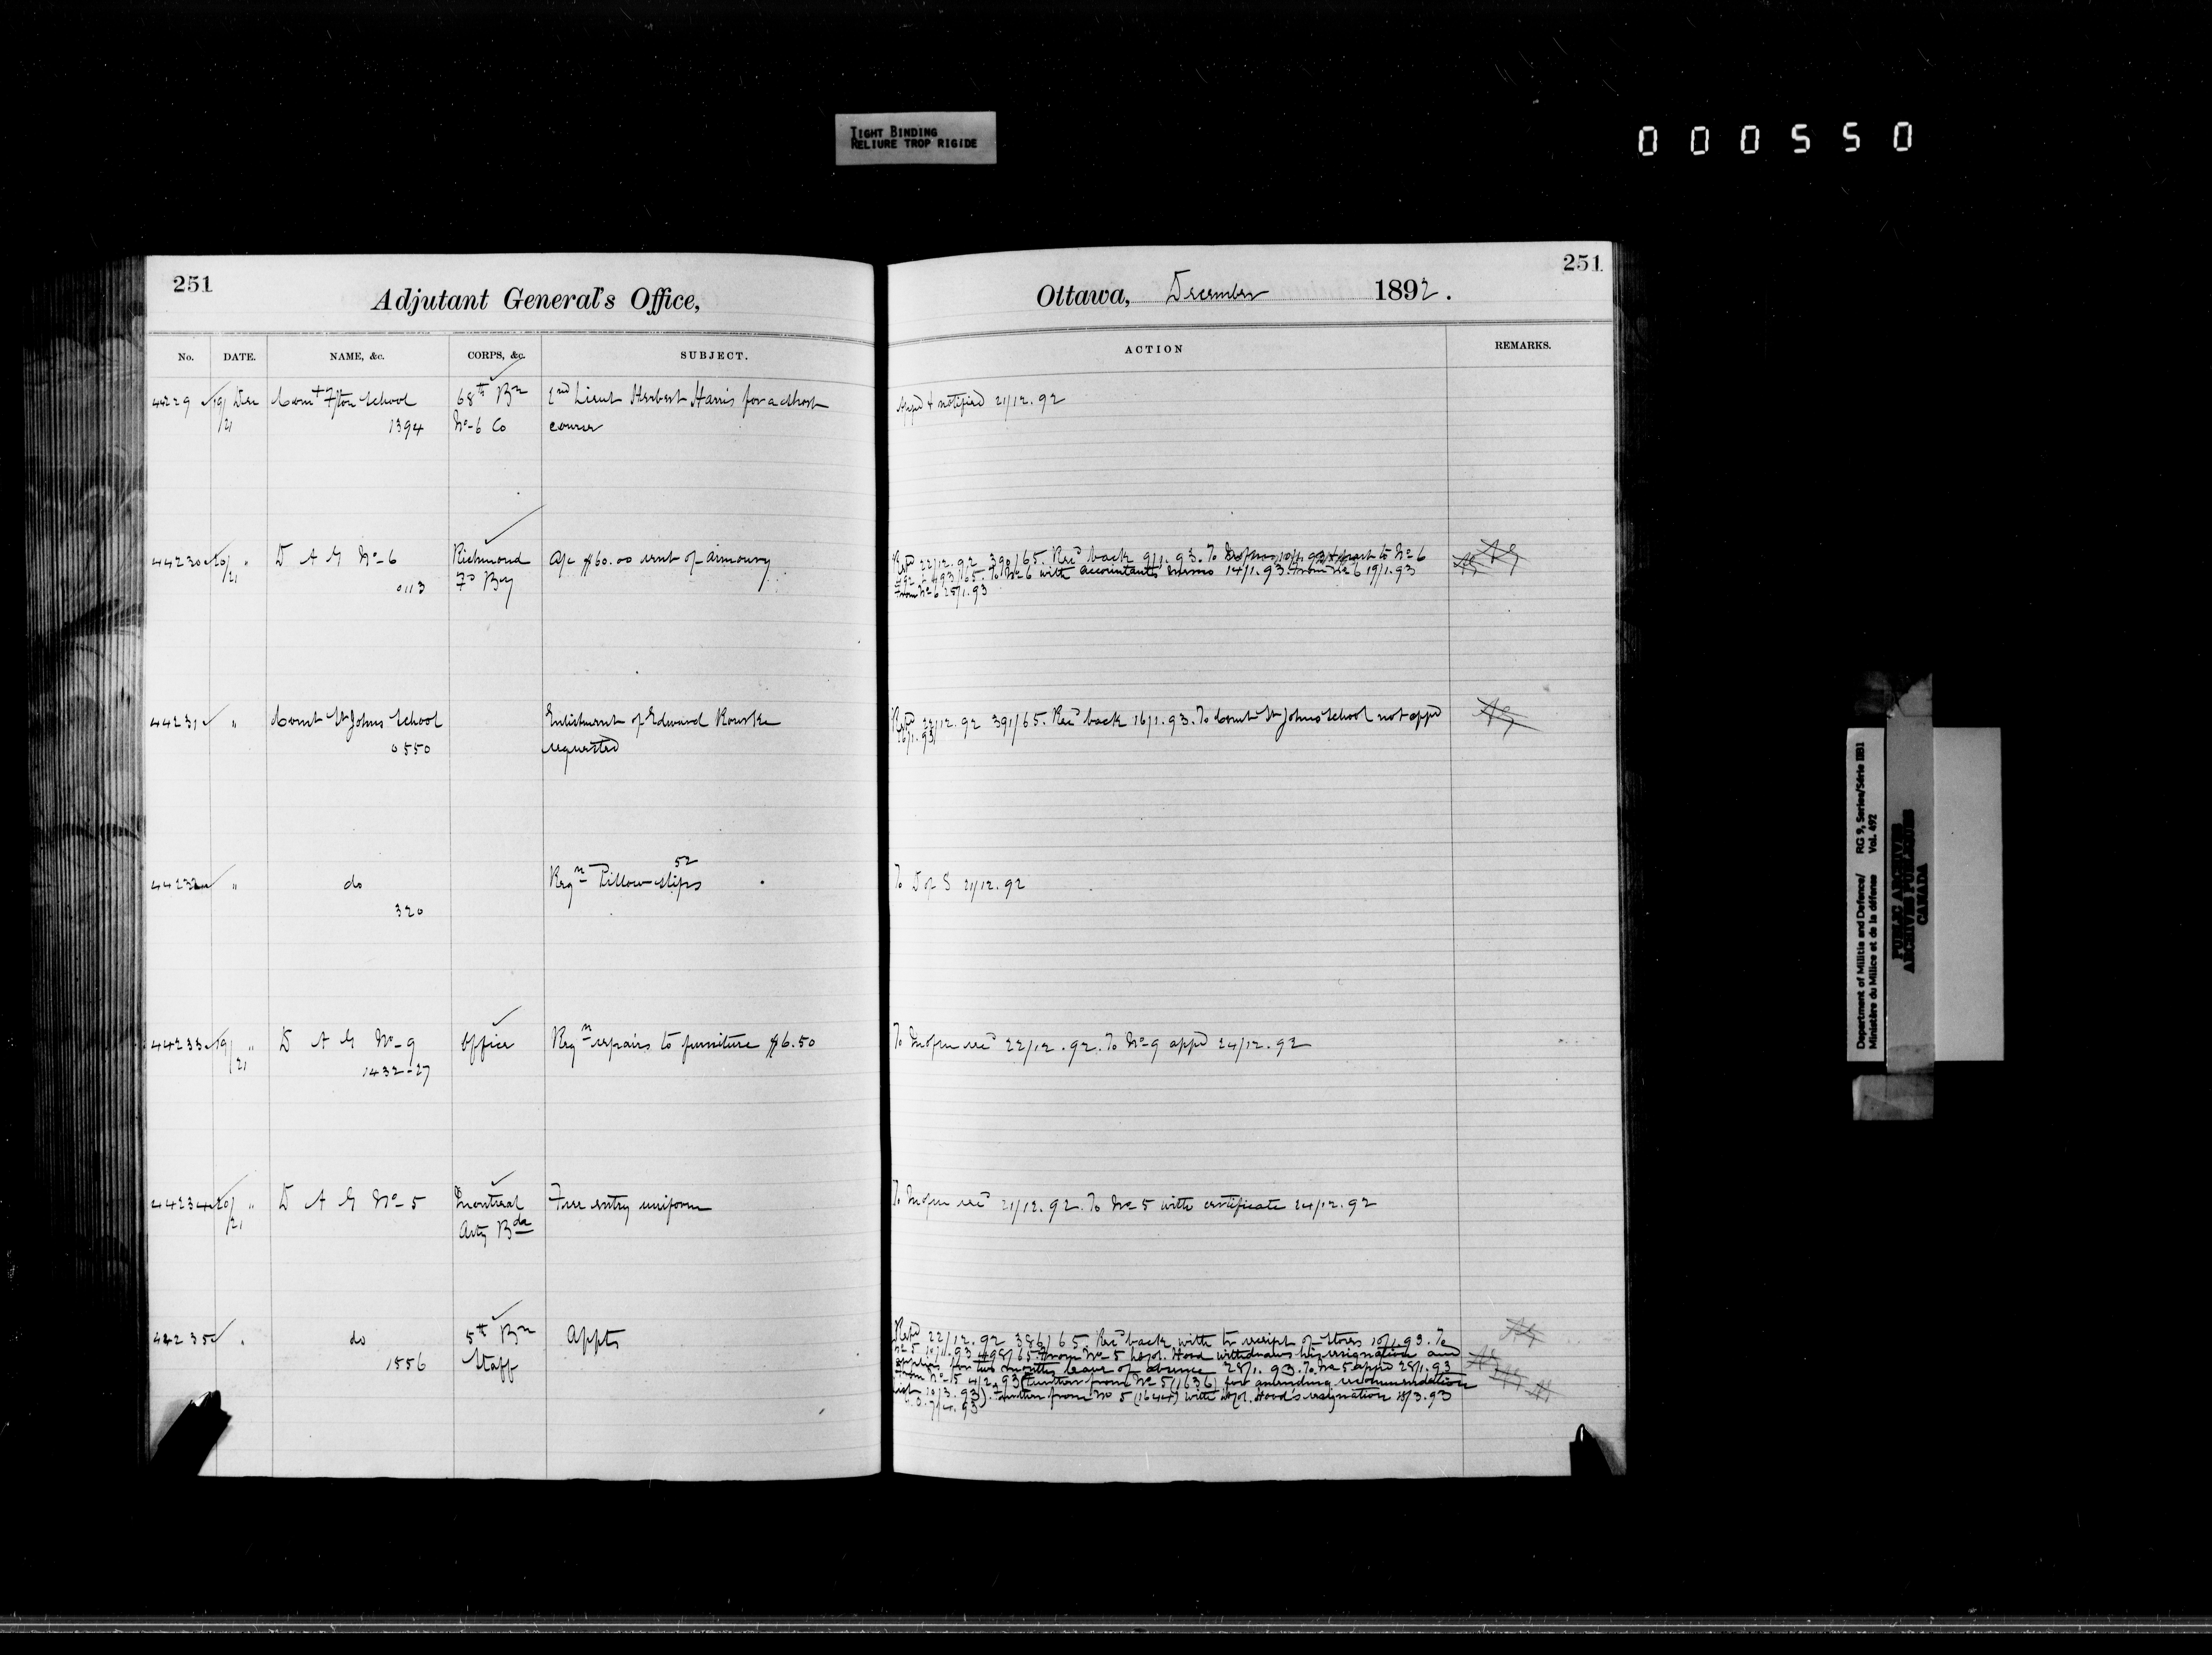 TIGHT BINDING
RELIURE TROP RIGIDE
000550
251
Adjutant General's Office,
No. DATE. NAME, &c. CORPS, &c. SUBJECT.
44229 19/21 Dec Comt Fton School 68th Bn 2nd Lieut Herbert Harris for a short
1394 No 6 Co course
44230 20/21 " D A G No 6 Richmond a/c $60.00 rent of armoury
0113 Fd By
44231 " Comt St Johns School Enlistment of Edward Rourke
0550 requested
44232 " do Reqn 52 Pillow slips
320
44233 19/21 " D A G No 9 Office Reqn repairs to furniture $6.50
1432-27
44234 20/21 " D A G No 5 Montreal Free entry uniform
Arty Bde
44235 " do 5th Bn Appts
1556 Staff
251
Ottawa, December 1892.
ACTION REMARKS.
Appd & notified 21/12.92
Refd 22/12.92 390/65. Recd back 9/1.93. To 10/1.93 to No 6
493/65. To No 6 with accountants memo 14/1.93. From No 6 19/1.93
From No 6 25/1.93
Refd 22/12.92 391/65. Recd back 16/1.93. To Comt St Johns School not appd
16/1.93
To D of S 21/12.92
To recd 22/12.92. To No 9 appd 24/12.92
To recd 21/12.92. To No 5 with certificate 24/12.92
Refd 22/12.92 386/65 Recd back with receipt of Stores 10/1.93. To
No 5 10/1.93 498/65. From No 5 Lt Col. Hood withdraws his resignation and
applies for two months leave of absence 28/1.93. To No 5 appd 28/1.93
From No 5 4/2.93 (Further from No 5 (1636) for amending recommendation
10/3.93). Further from No 5 (1644) with Lt Col. Hood's resignation 18/3.93
G.O. 7/4.93
Department of Militia and Defence/ RG 9, Series/Série IIB1
Ministère du Milice et de la défense Vol. 492
PUBLIC ARCHIVES
ARCHIVES PUBLIQUES
CANADA